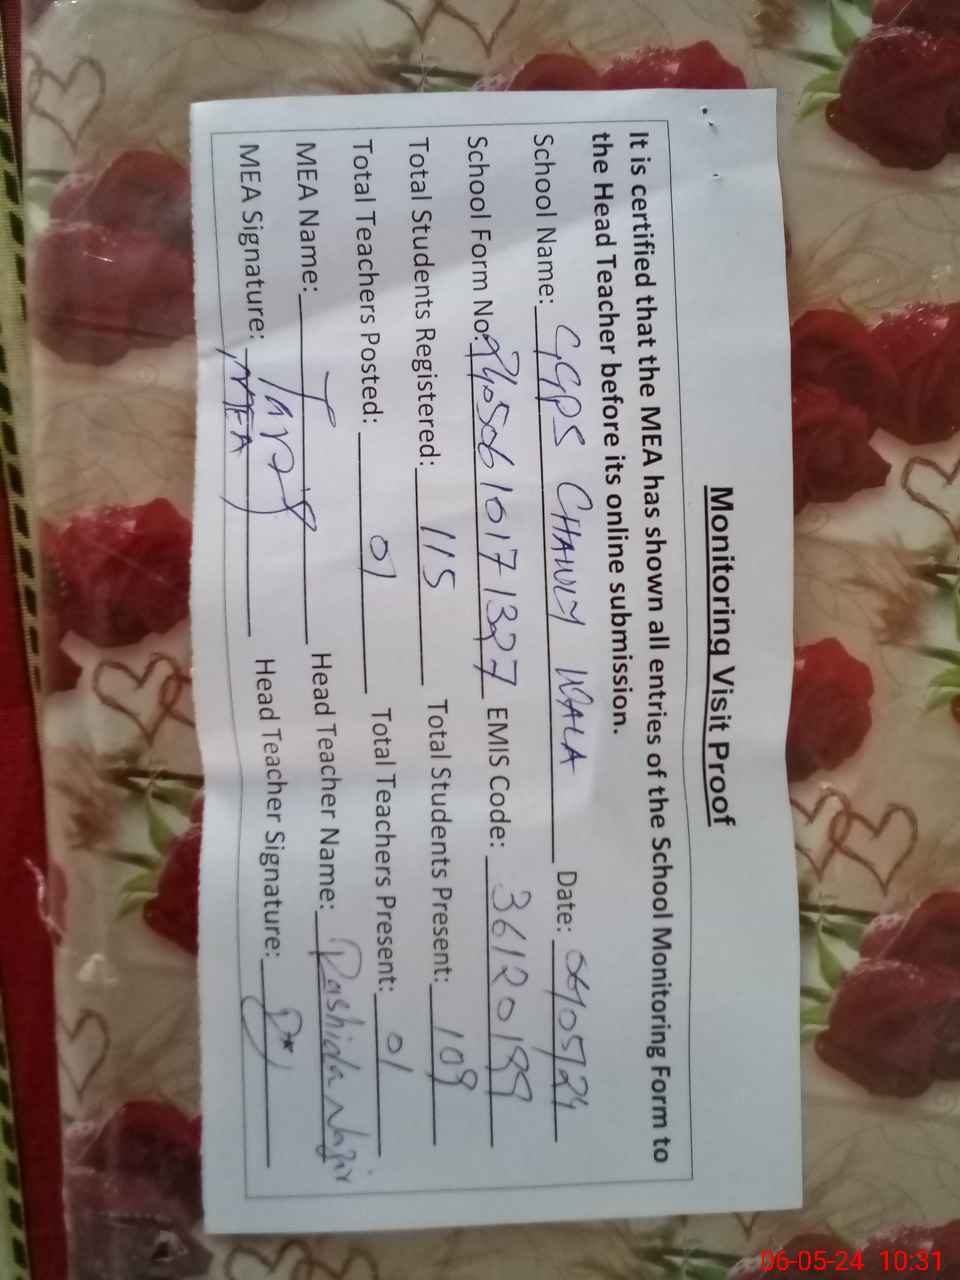 Monitoring Visit Proof
It is certified that the MEA has shown all entries of the School Monitoring Form to
the Head Teacher before its online submission.
School Name: GGPS CHAWLY WALA Date: 06/05/24
School Form No: EMIS Code:
Total Students Registered: 115 Total Students Present: 109
Total Teachers Posted: 01 Total Teachers Present: 01
MEA Name: Head Teacher Name: Rashida Nazir
MEA Signature: MEA Head Teacher Signature:
06-05-24 10:31